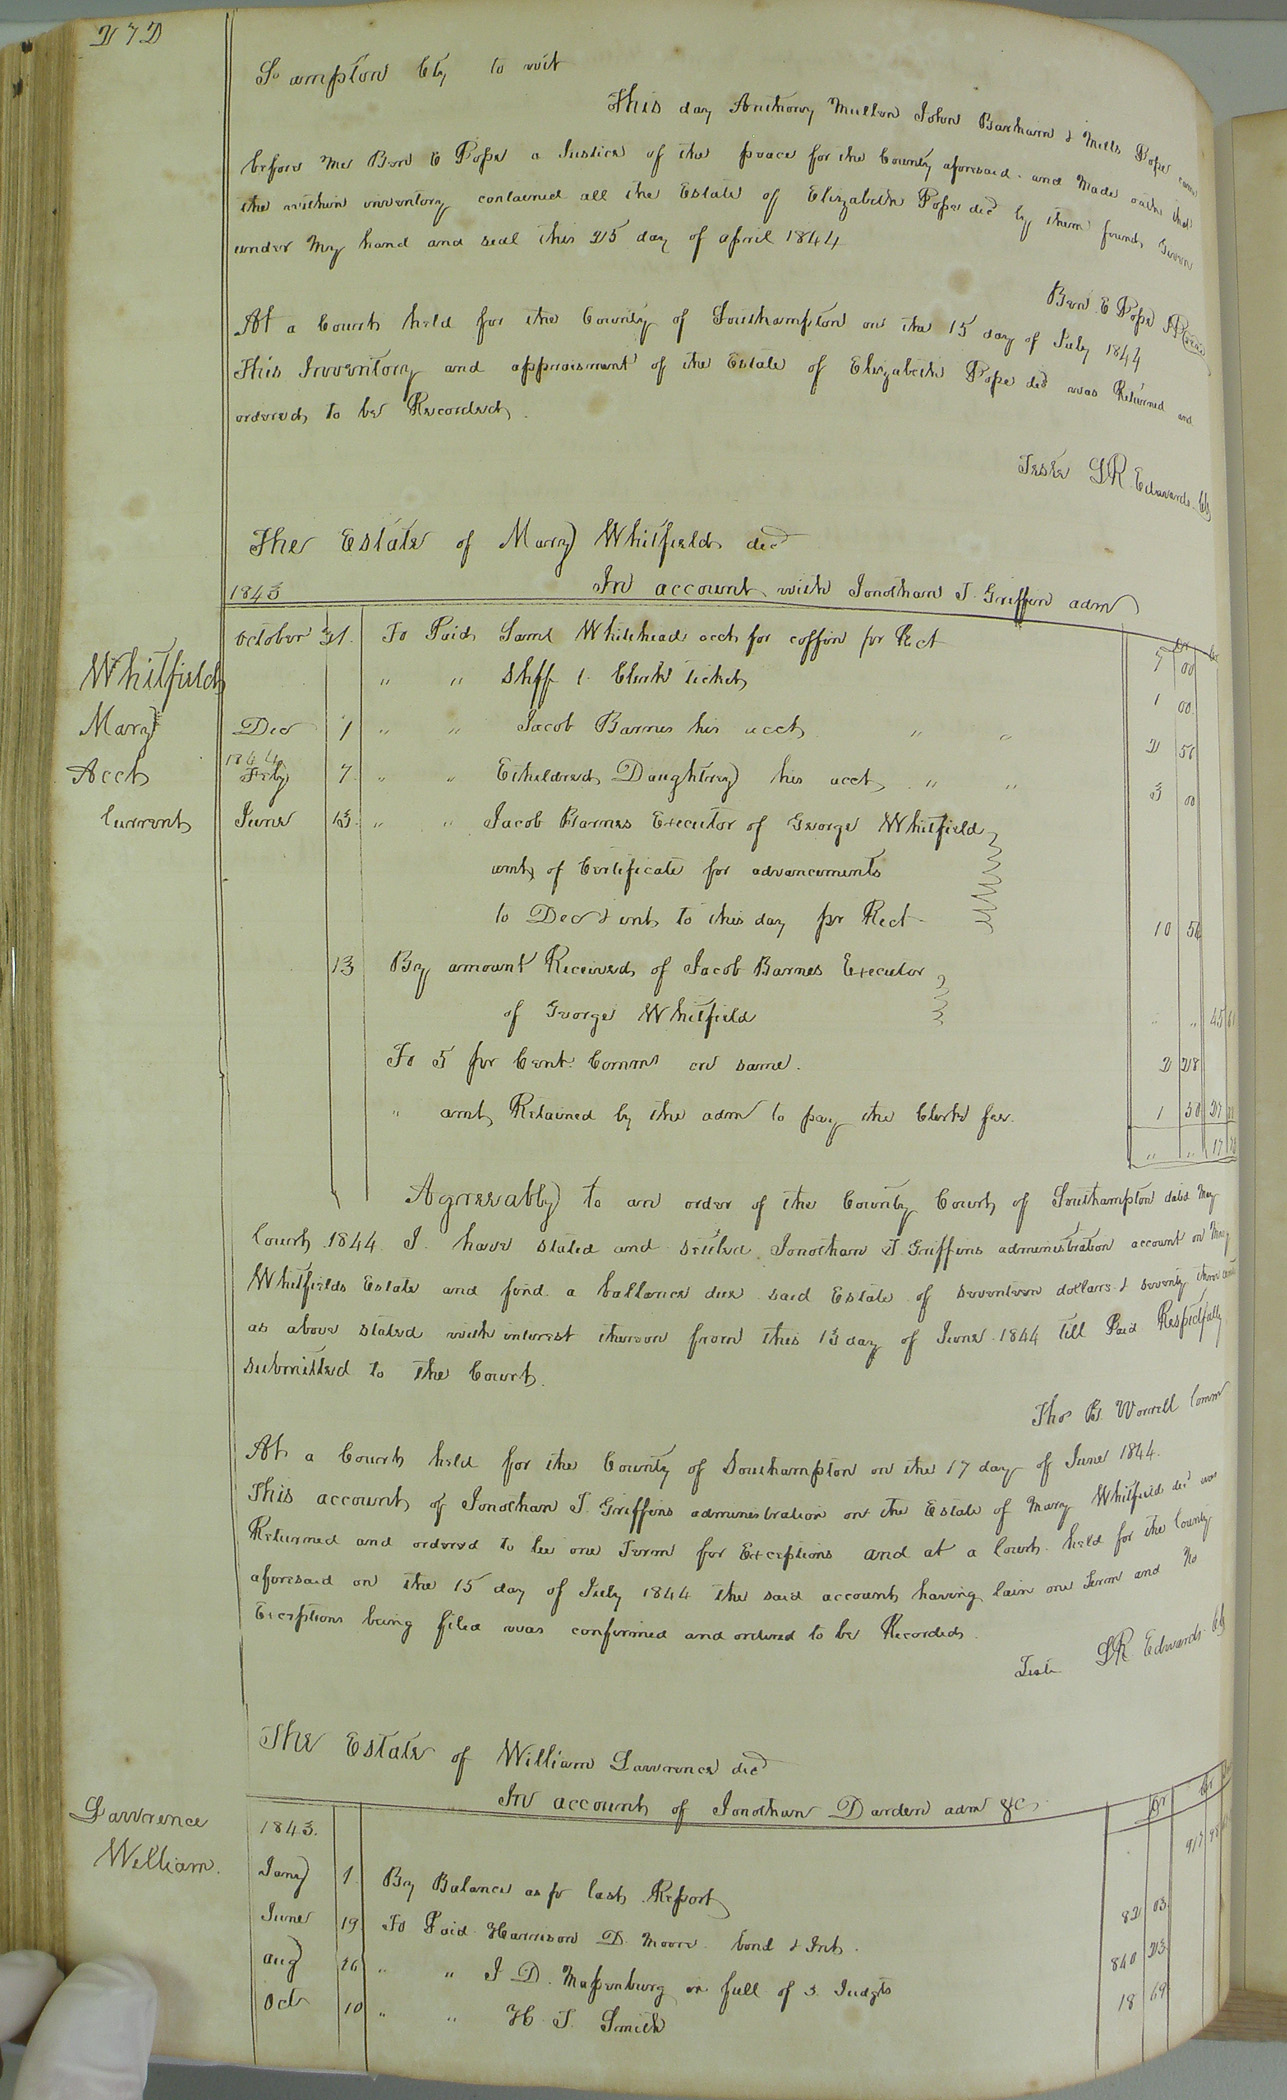 272
So ampton Cty to wit
This day Anthony Mullen John Barham & Mills Pope came
before me Ben E Pope a Justice of the peace for the County aforesaid and made oath that
the within inventory contained all the Estate of Elizabeth Pope decd by them found, Given
under my hand and seal this 25 day of april 1844
Ben E Pope JP Seal
At a Court held for the County of Southampton on the 15 day of July 1844
This Inventory and appraisment of the Estate of Elizabeth Pope decd was Returned and
ordered to be Recorded.
Teste L R Edwards Clk
The Estate of Mary Whitfield decd
In account with Jonothan J. Griffin adm
1843
Dr Cr
October 31. To Paid Saml Whitehead acct for coffin per Rect 7 00
" " Shff & Clerks tickets 1 00
Whitfield
Mary
Acct
Current
Dec 1 " " Jacob Barnes his acct " " 2 56
1844
Feby 7. " " Etheldred Daughtrey his acct, " " 3 00
June 13. " " Jacob Barnes Executor of George Whitfield
amt of Certificate for advancements
to Dec & int to this day per Rect 10 54
13 By amount Received of Jacob Barnes Executor
of George Whitfield " " 45
To 5 per Cent Comms on same. 2 28
" amt Retained by the adm to pay the Clerks fee. 1 50 27
" " 17
Agreeably to an order of the County Court of Southampton dated May
Court 1844 I have stated and settled Jonothan J Griffins administration account on Mary
Whitfields Estate and find a ballance due said Estate of seventeen dollars & seventy three cents
as above stated with interest thereon from this 13 day of June 1844 till Paid Respectfully
submitted to the Court.
Thos B. Worrell Comm
At a Court held for the County of Southampton on the 17 day of June 1844.
This account of Jonothan J. Griffins administration on the Estate of Mary Whitfield decd was
Returned and ordered to lie one Term for Exceptions and at a Court held for the County
aforesaid on the 15 day of July 1844 the said account having lain one Term and No
Exceptions being filed was confirmed and ordered to be Recorded.
Teste L R Edwards Clk
The Estate of William Lawrence decd
In account of Jonothan Darden adm &c
Lawrence
William.
1843.
Dr Cr
Jany 1 By Balance as pr last Report 917 98
June 19 To Paid Harrison D. Moore bond & Int. 82 03
aug 26 " " J D. Massenburg in full of 3 Judgts 840 23
Oct 10 " " H. J. Smith 18 69